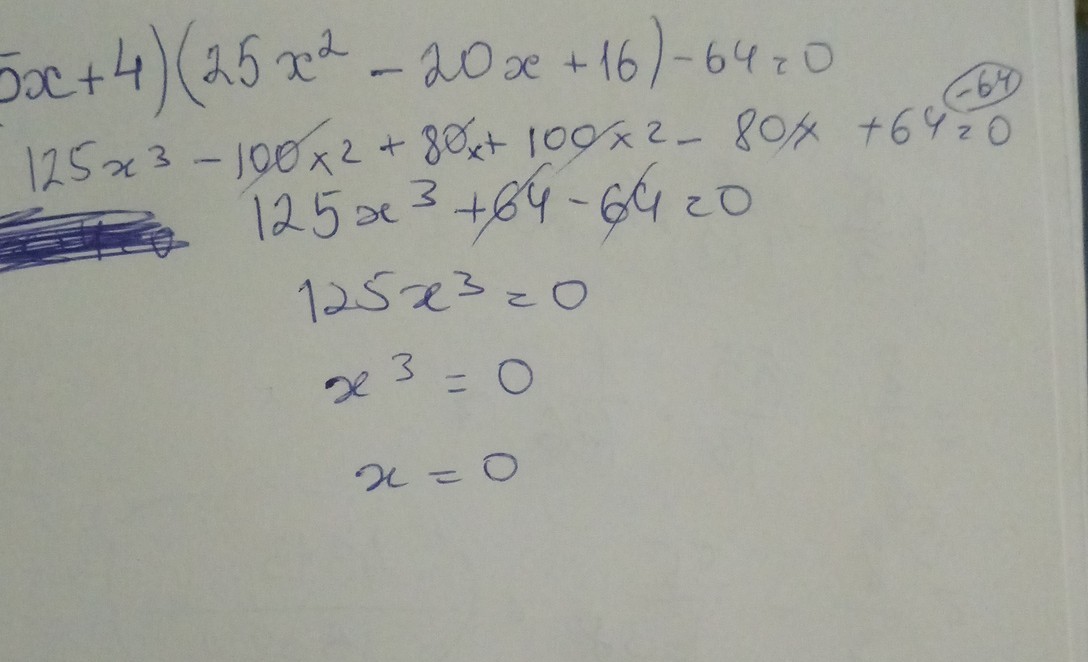 5x+4)(25x² - 20x +16)-64=0
125x³ - 100x2 + 80x+ 100x2 - 80x +64=0 -64
125x³ +64 -64 =0
125x³ = 0
x³ = 0
x = 0